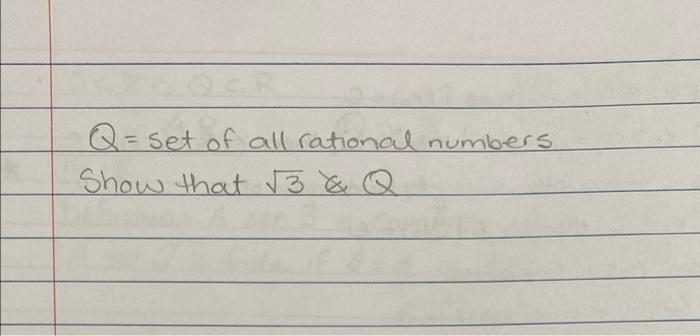 Q = set of all rational numbers
Show that √3 ∉ Q